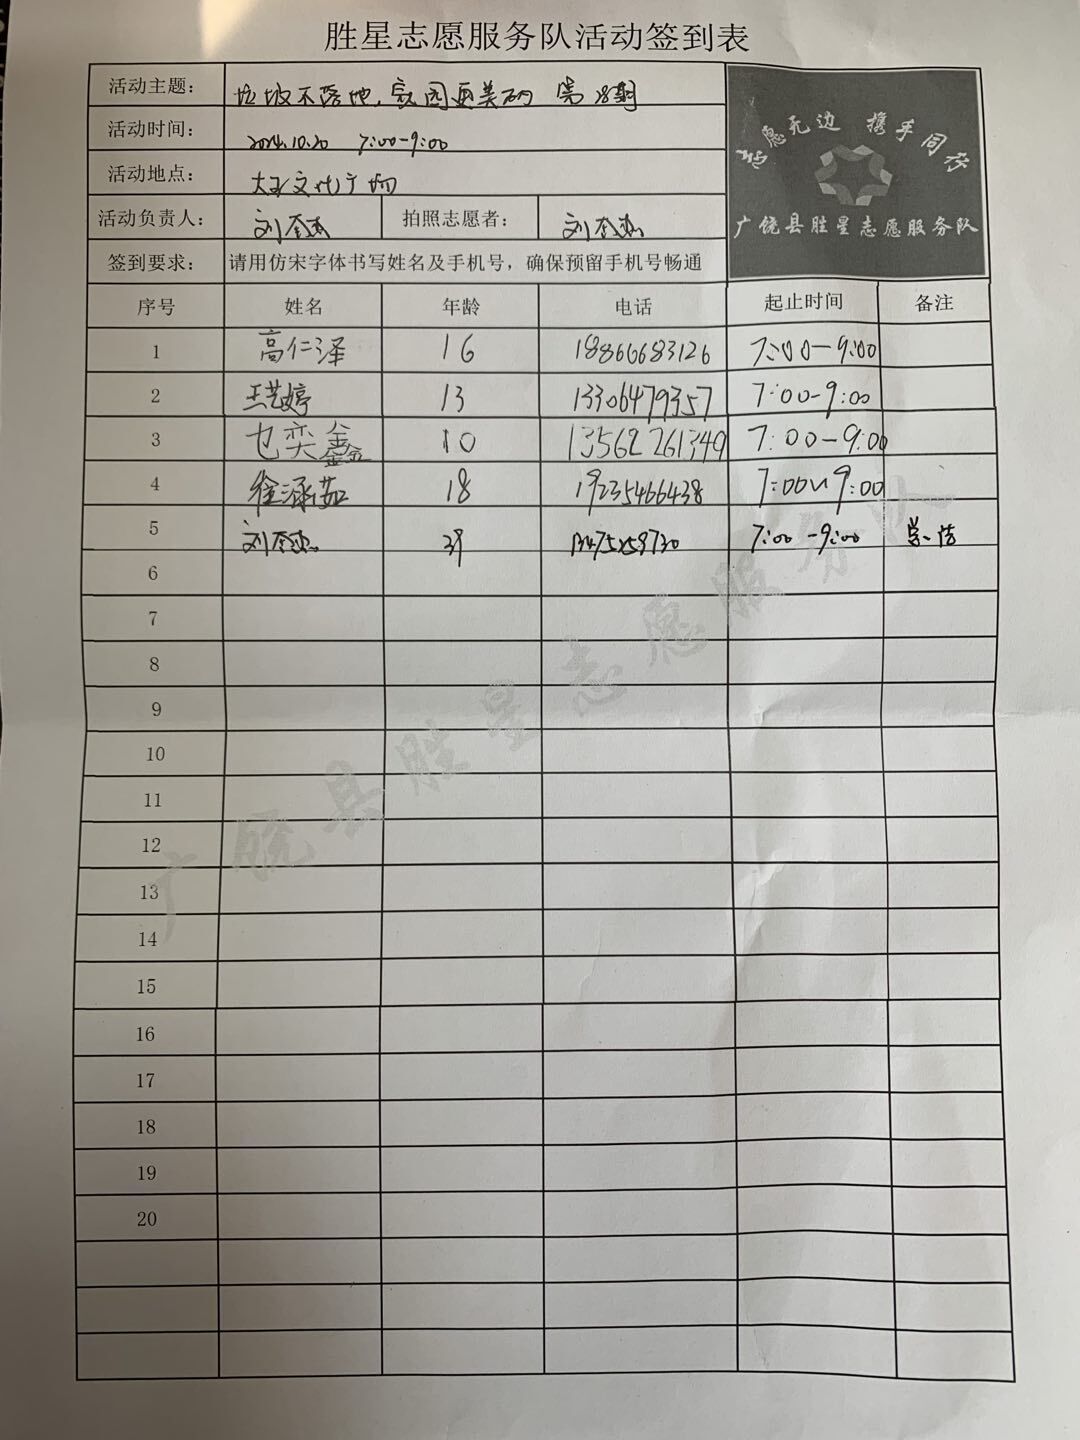 胜星志愿服务队活动签到表
活动主题： 垃圾不落地，家园更美丽 第28期
活动时间： 2024.10.20 7:00-9:00
活动地点： 大王文化广场
志愿无边 携手同行
广饶县胜星志愿服务队
活动负责人： 刘奎杰 拍照志愿者： 刘奎杰
签到要求： 请用仿宋字体书写姓名及手机号，确保预留手机号畅通
序号 姓名 年龄 电话 起止时间 备注
1 高仁泽 16 18866683126 7:00-9:00
2 王艺婷 13 13306479357 7:00-9:00
3 也奕鑫 10 13562261349 7:00-9:00
4 徐涵茹 18 19235466438 7:00~9:00
5 刘奎杰 39 7:00-9:00
6
7
8
9
10
11
12
13
14
15
16
17
18
19
20
广饶县胜星志愿服务队